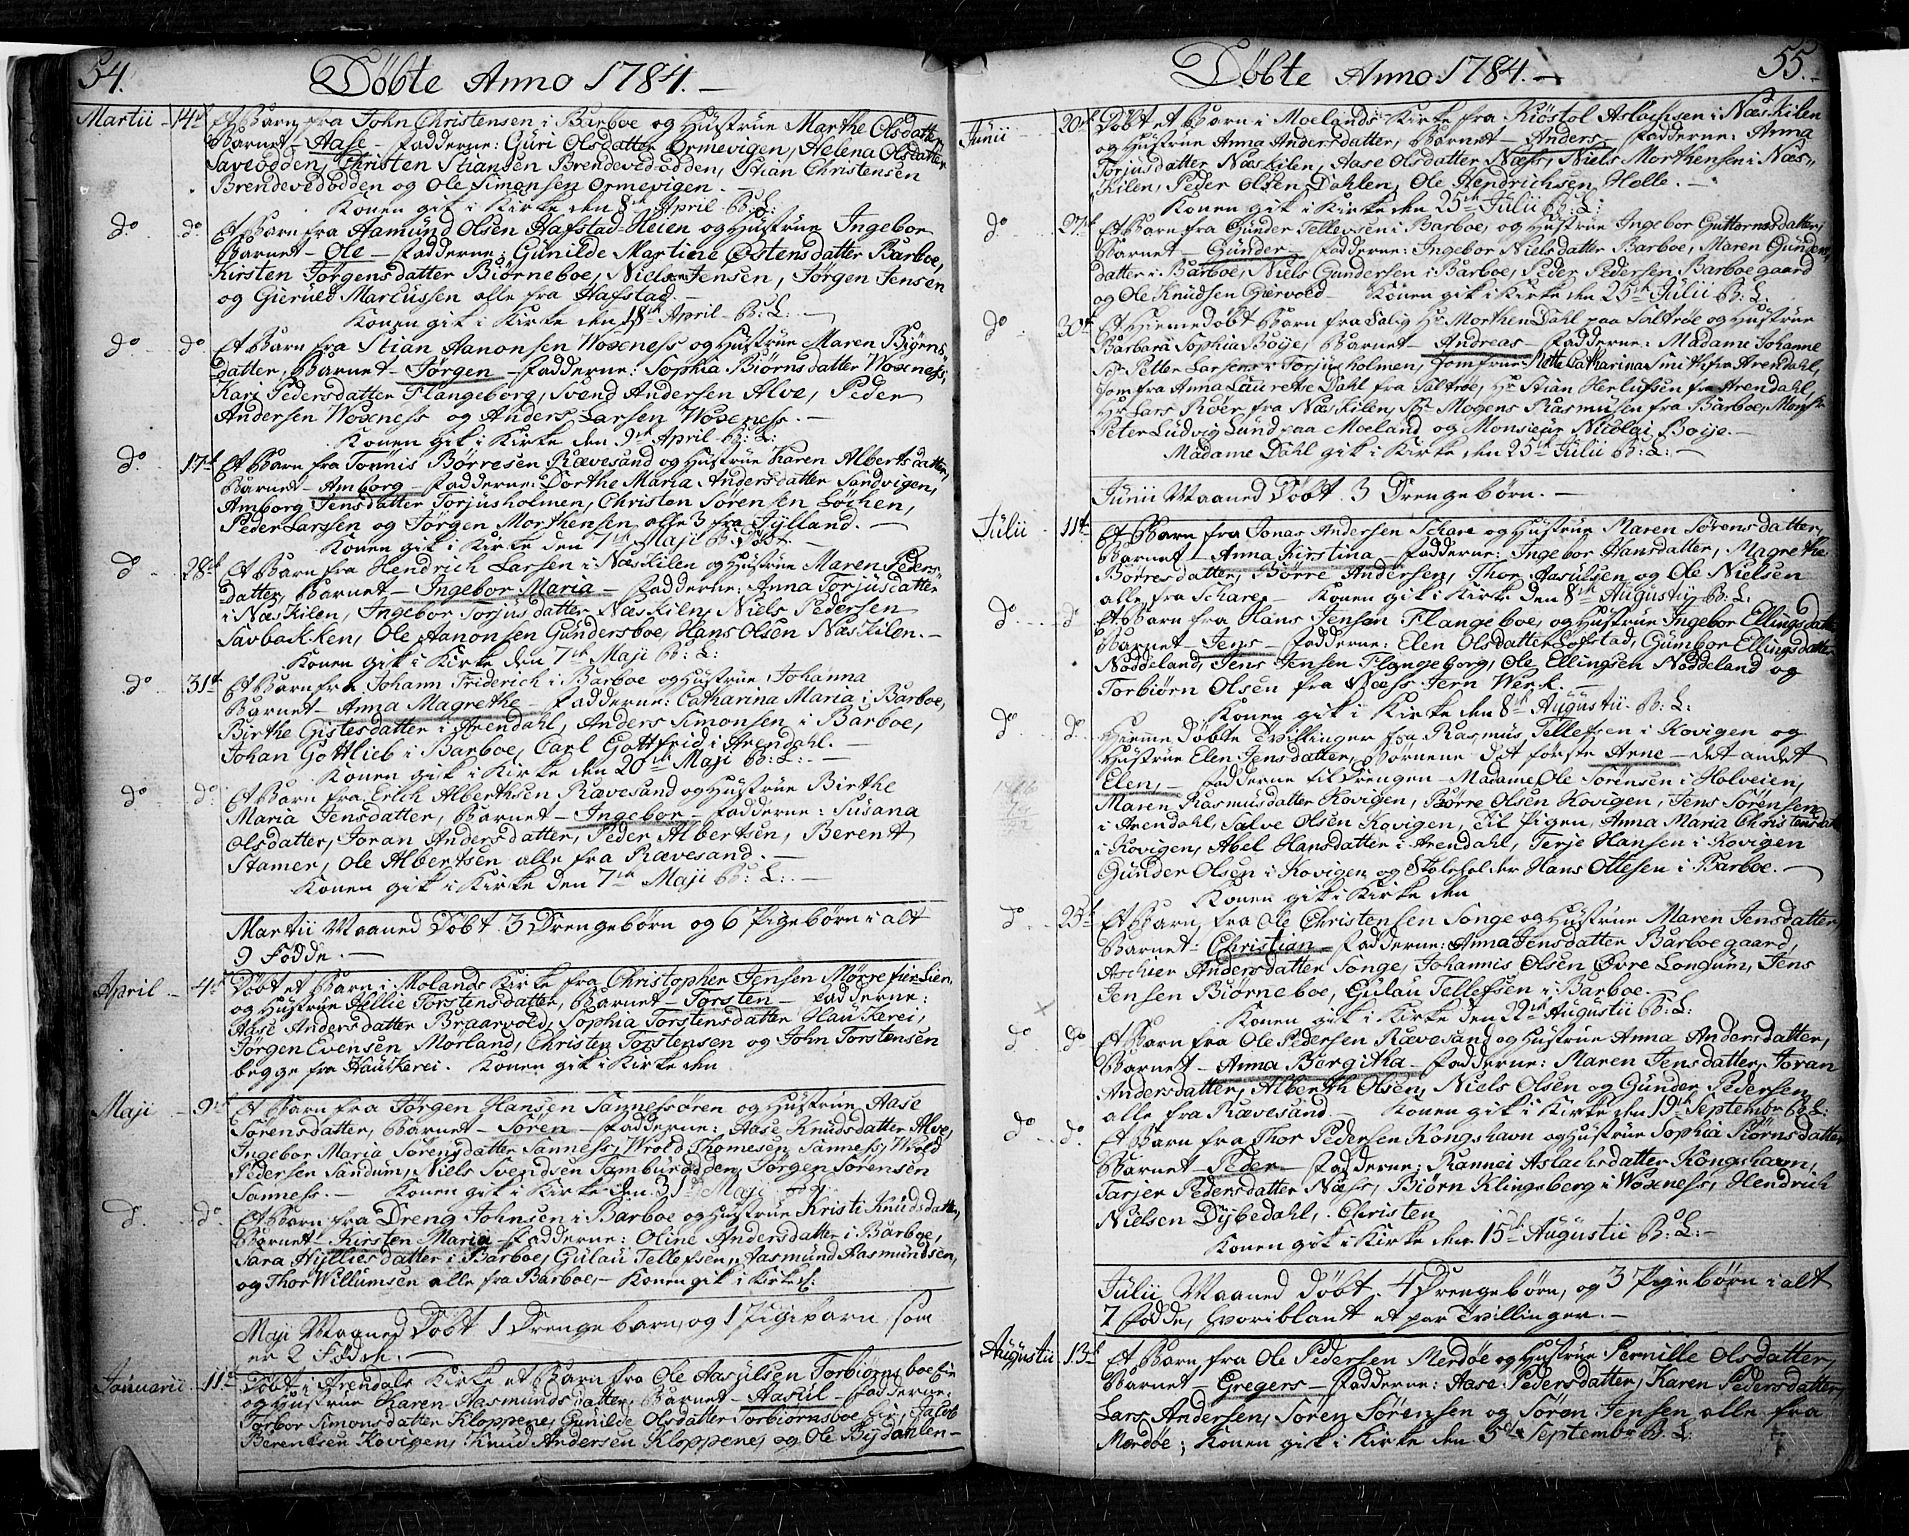 54.
Döbte Anno 1784. —
Martii 14de Et Barn fra John Christensen i Barboe og Hustrue Marthe Olsdatter,
Barnet — Aase — Fadderne: Guri Olsdatter Ormevigen, Helena Olsdatter
Saveodden, Christen Stiansen Brendevedodden, Stian Christensen
Brendevedodden og Ole Simonsen Ormevigen. —
Konen gik i Kirke den 8de April B: L:
do do Et Barn fra Aamund Olsen Hafstad-Heien og Hustrue Ingebor
Barnet — Ole — Fadderne: Gunilde Martine Östensdatter Barboe,
Kirsten Jörgensdatter Biörneboe, Niels Jensen, Jörgen Jensen
og Gieruld Marcussen alle fra Hafstad —
Konen gik i Kirke den 18de April B: L: —
do do Et Barn fra Stian Aanonsen Woxness og Hustrue Maren Biörns-
datter, Barnet — Jörgen — Fadderne: Sophia Biörnsdatter Woxness,
Kari Pedersdatter Flangeborg, Svend Andersen Alve, Peder
Andersen Woxness og Anders Larsen Woxness. —
Konen gik i Kirke den 9de April B: L:
do 17de Et Barn fra Tönnis Börresen Rævesand og Hustrue Karen Albertsdatter,
Barnet — Amborg — Fadderne: Dorthe Maria Andersdatter Sandvigen,
Amborg Jensdatter Torjusholmen, Christen Sörensen Löchen,
Peder Larssen og Jörgen Morthensen alle 3 fra Jylland. —
Konen gik i Kirke den 7de Maji B: Döbt —
do 28de Et Barn fra Hendrich Larsen i Næskilen og Hustrue Maren Peders-
datter, Barnet — Ingebor Maria — Fadderne: Anna Torjusdatter
i Næskilen, Ingebor Torjusdatter Næskilen, Niels Pedersen
Savbakken, Ole Aanonsen Gundersboe, Hans Olsen Næskilen. —
Konen gik i Kirke den 7de Maji B: L:
do 31te Et Barn fra Johann Friderich i Barboe og Hustrue Johanna
Barnet — Anna Magrethe — Fadderne: Catharina Maria i Barboe,
Birthe Gistesdatter i Arendahl, Anders Simonsen i Barboe,
Johan Gottlieb i Barboe, Carl Gottfrid i Arendahl. —
Konen gik i Kirke den 20de Maji B: L: —
do do Et Barn fra Erich Alberthsen Rævesand og Hustrue Birthe
Maria Jensdatter, Barnet — Ingebor — Fadderne: Susana
Olsdatter, Joran Andersdatter, Peder Albertsen, Berent
Stamer, Ole Albertsen alle fra Rævesand. —
Konen gik i Kirke den 7de Maji B: L: —
Martii Maaned Döbt 3 Drengebörn og 6 Pigebörn i alt
9 Födde. —
April 4de Döbt et Barn i Molands Kirke fra Christopher Jensen Mörrefier Lien
og Hustrue Hellie Torstensdatter, Barnet — Torsten — Fadderne:
Aase Andersdatter Braarvold, Sophia Torstensdatter Haukerei,
Jörgen Evensen Morland, Christen Torstensen og John Torstensen
begge fra Haukerei. Konen gik i Kirke den
Maji 9de Et Barn fra Jörgen Hansen Sannessören og Hustrue Aase
Sörensdatter, Barnet — Sören — Fadderne: Aase Knudsdatter Alve,
Ingebor Maria Sörensdatter Sanness, Wrold Thomesen Sanness, Wrold
Pedersen Sandum, Niels Svendsen Tamburodden, Jörgen Sörensen
Sanness. — Konen gik i Kirke den 31te Maji
do do Et Barn fra Dreng Johnsen i Barboe og Hustrue Kristi Knudsdatter,
Barnet — Kirsten Maria — Fadderne: Oline Andersdatter i Barboe,
Sara Hylliesdatter i Barboe, Gulau Tellefsen, Aasmund Aasmundsen,
og Thor Willumsen alle fra Barboe. — Konen gik i Kirke
Maji Maaned Döbt 1 Drengebarn, og 1 Pigebarn som
er 2 Födde. —
Januarii 11te Döbt i Arendals Kirke et Barn fra Ole Aasulsen Torbiörnsboe Eie
og Hustrue Karen Aasmundsdatter, Barnet — Aasul — Fadderne:
Torbor Simonsdatter Kloppene, Gunilde Olsdatter Torbiörnsboe Eie, Jacob
Berentsen Kovigen, Knud Andersen Kloppene, og Ole Bijdahlen —
55.
Döbte Anno 1784. —
Junii 20de Döbt et Barn i Moelands Kirke fra Kiöstol Aslachsen i Næskilen
og Hustrue Anna Andersdatter, Barnet — Anders — Fadderne: Anna
Torjusdatter Næskilen, Aase Olsdatter Næss, Niels Morthensen i Næs-
kilen, Peder Olsen Dahlen, Ole Hendrichsen Holle. —
Konen gik i Kirke den 25de Julii B: L:
do 27de Et Barn fra Gunder Tellevsen i Barboe, og Hustrue Ingebor Guttormsdatter,
Barnet — Gunder — Fadderne: Ingebor Nielsdatter Barboe, Maren Gunders-
datter i Barboe, Niels Gundersen i Barboe, Peder Pedersen Barboegaard
og Ole Knudsen Giervold — Konen gik i Kirke den 25de Julii B: L:
do 30te Et Hiemedöbt Barn fra Salig Hr Morthen Dahl paa Saltröe og Hustrue
Barbara Sophia Boije, Barnet — Andreas — Fadderne: Madame Johanne
Sr Petter Larsens i Torjusholmen, Jomfrue Mette Catharina Smith fra Arendahl,
Jomfru Anna Lauretse Dahl fra Saltröe, Hr Stian Herlufsen fra Arendahl,
Hr Lars Röer fra Næskilen, Sr Mogens Rasmusen fra Barboe, Monsr
Peter Ludvig Lund paa Moeland og Monsieur Nicolai Boije. —
Madame Dahl gik i Kirke den 25de Julii B: L: —
Junii Maaned Döbt 3 Drengebörn. —
Julii 11te Et Barn fra Jonas Andersen Schare og Hustrue Maren Sörensdatter,
Barnet — Anna Kirstina — Fadderne: Ingebor Hansdatter, Magrethe
Börresdatter, Börre Andersen, Thor Aasulsen og Ole Nielsen
alle fra Schare. — Konen gik i Kirke den 8de Augustii B: L:
do do Et Barn fra Hans Jensen Flangeboe, og Hustrue Ingebor Ellingsdatter
Barnet — Jens — Fadderne: Elen Olsdatter Lofstad, Gumbor Ellingsdatter
Nöddeland, Jens Jensen Flangeborg, Ole Ellingsen Nöddeland og
Torbiörn Olsen fra Næss Jern Werk.
Konen gik i Kirke den 8de Augustii B: L:
do do Hiemedöbte Tvillinger fra Rasmus Tellefsen i Kovigen og
Hustrue Elen Jensdatter, Börnene det förste — Arne — det andet
Elen, — Fadderne til Drengen — Madame Ole Sörensen i Holveien,
Maren Rasmusdatter Kovigen, Börre Olsen Kovigen, Jens Sörensen
i Arendahl, Salve Olsen Kovigen, Til Pigen, Anna Maria Christensdatter
i Kovigen, Abel Hansdatter i Arendahl, Terje Hansen i Kovigen
Gunder Olsen i Kovigen og Skoleholder Hans Ottesen i Barboe. —
Konen gik i Kirke den
do 25de Et Barn fra Ole Christensen Songe og Hustrue Maren Jensdatter,
Barnet: Christian — Fadderne: Anna Jensdatter Barboegaard,
Aschier Andersdatter Songe, Johannis Olsen Övre Longum, Jens
Jensen Biörneboe, Gulau Tellefsen i Barboe.
Konen gik i Kirke den 22de Augustii B: L:
do do Et Barn fra Ole Pedersen Rævesand og Hustrue Anna Andersdatter,
Barnet — Anna Bergitha — Fadderne: Maren Jensdatter, Joran
Andersdatter, Alberth Olsen, Niels Olsen og Gunder Pedersen
alle fra Rævesand. — Konen gik i Kirke den 19de Septembr B: L:
do do Et Barn fra Thor Pedersen Kongshavn og Hustrue Sophia Biörnsdatter
Barnet — Peder — Fadderne: Rannei Aslachsdatter Kongshavn,
Tarjer Pedersdatter Næss, Biörn Klingsberg i Woxness, Hendrich
Nielsen Dijbedahl, Christen
Konen gik i Kirke den 15de Augustii B: L: —
Julii Maaned Döbt 4 Drengebörn, og 3 Pigebörn i alt
7 Födde, hvoriblant et par Tvillinger. —
Augustii 13de Et Barn fra Ole Pedersen Merdöe og Hustrue Pernille Olsdatter,
Barnet — Gregers — Fadderne: Aase Pedersdatter, Karen Pedersdatter,
Lars Andersen, Sören Sörensen og Sören Jensen alle fra
Merdöe; Konen gik i Kirke den 5te Septembr B: L: